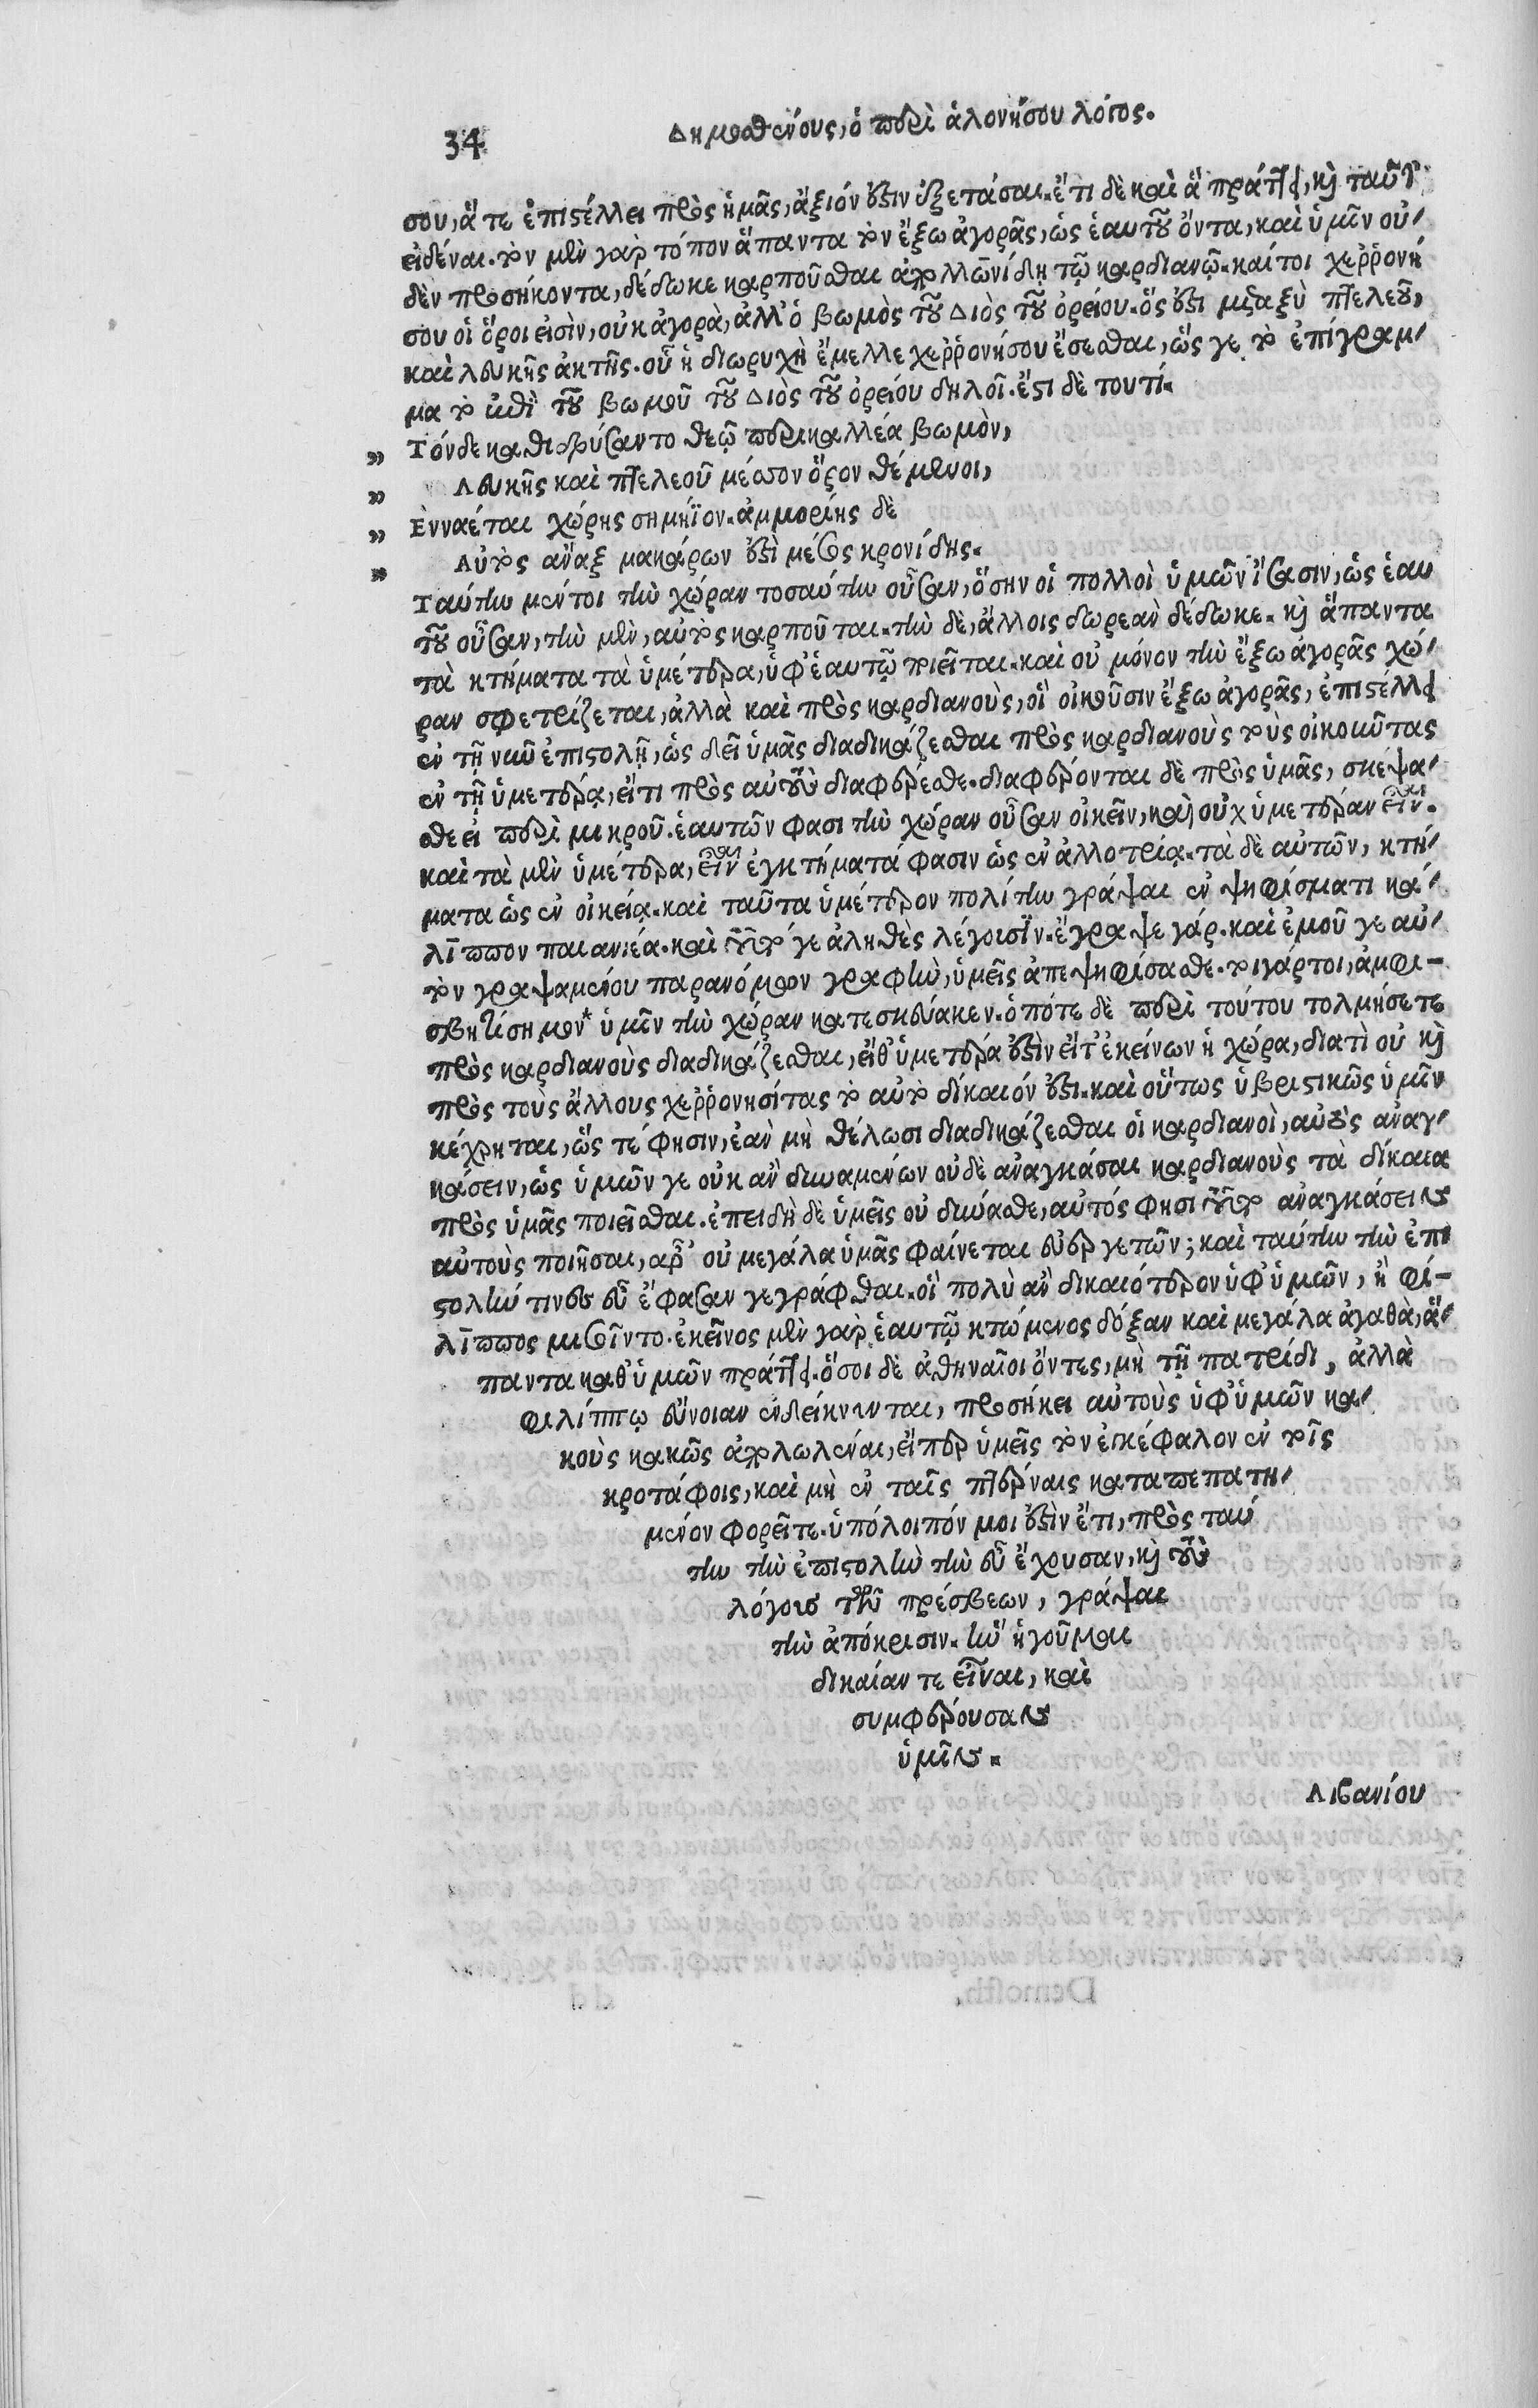 34
Δημοσθένους, ὁ περὶ ἁλονήσου λόγος.
σου, ἅ τε ἐπιστέλλει πρὸς ἡμᾶς, ἄξιόν ἐστιν ἐξετάσαι. ἔτι δὲ καὶ ἃ πράττει, καὶ ταῦτ'
εἰδέναι. τὸν μὲν γὰρ τόπον ἅπαντα τὸν ἔξω ἀγορᾶς, ὡς ἑαυτοῦ ὄντα, καὶ ὑμῖν οὐ-
δὲν προσήκοντα, δέδωκε καρποῦσθαι ἀπολλωνίδῃ τῷ καρδιανῷ. καίτοι χερρονή
σου οἱ ὅροι εἰσὶν, οὐκ ἀγορὰ, ἀλλ' ὁ βωμὸς τοῦ Διὸς τοῦ ὁρείου. ὅς ἐστι μεταξὺ πτελεοῦ,
καὶ λευκῆς ἀκτῆς. οὗ ἡ διωρυχὴ ἔμελλε χερρονήσου ἔσεσθαι, ὥς γε τὸ ἐπίγραμ-
μα τὸ ἐπὶ τοῦ βωμοῦ τοῦ Διὸς τοῦ ὁρείου δηλοῖ. ἔστι δὲ τουτί.
„ Τόνδε καθιδρύσαντο θεῷ περικαλλέα βωμὸν,
„ Λευκῆς καὶ πτελεοῦ μέσον ὅρον θέμενοι,
„ Ἐνναέται χώρης σημήϊον. ἀμμορίης δὲ
„ Αὐτὸς ἄναξ μακάρων ἐστὶ μέσος κρονίδης.
Ταύτην μέντοι τὴν χώραν τοσαύτην οὖσαν, ὅσην οἱ πολλοὶ ὑμῶν ἴσασιν, ὡς ἑαυ
τοῦ οὖσαν, τὴν μὲν, αὐτὸς καρποῦται. τὴν δὲ, ἄλλοις δωρεὰν δέδωκε. καὶ ἅπαντα
τὰ κτήματα τὰ ὑμέτερα, ὑφ' ἑαυτῷ ποιεῖται. καὶ οὐ μόνον τὴν ἔξω ἀγορᾶς χώ-
ραν σφετερίζεται, ἀλλὰ καὶ πρὸς καρδιανοὺς, οἳ οἰκοῦσιν ἔξω ἀγορᾶς, ἐπιστέλλει
ἐν τῇ νῦν ἐπιστολῇ, ὡς δεῖ ὑμᾶς διαδικάζεσθαι πρὸς καρδιανοὺς τοὺς οἰκοῦντας
ἐν τῇ ὑμετέρᾳ, εἴ τι πρὸς αὐτοὺς διαφέρεσθε. διαφέρονται δὲ πρὸς ὑμᾶς, σκέψα-
σθε εἰ περὶ μικροῦ. ἑαυτῶν φασι τὴν χώραν οὖσαν οἰκεῖν, καὶ οὐχ ὑμετέραν εἶναι.
καὶ τὰ μὲν ὑμέτερα, εἶναι ἐγκτήματά φασιν ὡς ἐν ἀλλοτρίᾳ. τὰ δὲ αὑτῶν, κτή-
ματα ὡς ἐν οἰκείᾳ. καὶ ταῦτα ὑμέτερον πολίτην γράψαι ἐν ψηφίσματι κά-
λιππον παιανιέα. καὶ τοῦτό γε ἀληθὲς λέγουσιν. ἔγραψε γάρ. καὶ ἐμοῦ γε αὐ-
τὸν γραψαμένου παρανόμων γραφὴν, ὑμεῖς ἀπεψηφίσασθε. τοιγάρτοι, ἀμφι-
σβητήσιμον* ὑμῖν τὴν χώραν κατεσκεύακεν. ὁπότε δὲ περὶ τούτου τολμήσετε
πρὸς καρδιανοὺς διαδικάζεσθαι, εἴθ' ὑμετέρα ἐστὶν εἴτ' ἐκείνων ἡ χώρα, διατὶ οὐ καὶ
πρὸς τοὺς ἄλλους χερρονησίτας τὸ αὐτὸ δίκαιόν ἐστι. καὶ οὕτως ὑβριστικῶς ὑμῖν
κέχρηται, ὥς τέ φησιν, ἐὰν μὴ θέλωσι διαδικάζεσθαι οἱ καρδιανοὶ, αὐτὸς ἀναγ-
κάσειν, ὡς ὑμῶν γε οὐκ ἂν δυναμένων οὐδὲ ἀναγκάσαι καρδιανοὺς τὰ δίκαια
πρὸς ὑμᾶς ποιεῖσθαι. ἐπειδὴ δὲ ὑμεῖς οὐ δύνασθε, αὐτός φησι τοῦτο ἀναγκάσειν
αὐτοὺς ποιῆσαι, ἆρ' οὐ μεγάλα ὑμᾶς φαίνεται εὐεργετῶν; καὶ ταύτην τὴν ἐπι
στολὴν τινὲς εὖ ἔφασαν γεγράφθαι. οἳ πολὺ ἂν δικαιότερον ὑφ' ὑμῶν, ἢ φί-
λιππος μισοῖντο. ἐκεῖνος μὲν γὰρ ἑαυτῷ κτώμενος δόξαν καὶ μεγάλα ἀγαθὰ, ἅ-
παντα καθ' ὑμῶν πράττει. ὅσοι δὲ ἀθηναῖοι ὄντες, μὴ τῇ πατρίδι, ἀλλὰ
φιλίππῳ εὔνοιαν ἐνδείκνυνται, προσήκει αὐτοὺς ὑφ' ὑμῶν κα-
κοὺς κακῶς ἀπολωλέναι, εἴπερ ὑμεῖς τὸν ἐγκέφαλον ἐν τοῖς
κροτάφοις, καὶ μὴ ἐν ταῖς πτέρναις καταπεπατη-
μένον φορεῖτε. ὑπόλοιπόν μοι ἐστὶν ἔτι, πρὸς ταύ
την τὴν ἐπιστολὴν τὴν εὖ ἔχουσαν, καὶ τοὺς
λόγους τῶν πρέσβεων, γράψαι
τὴν ἀπόκρισιν. ἣν ἡγοῦμαι
δικαίαν τε εἶναι, καὶ
συμφέρουσαν
ὑμῖν.
Λιβανίου